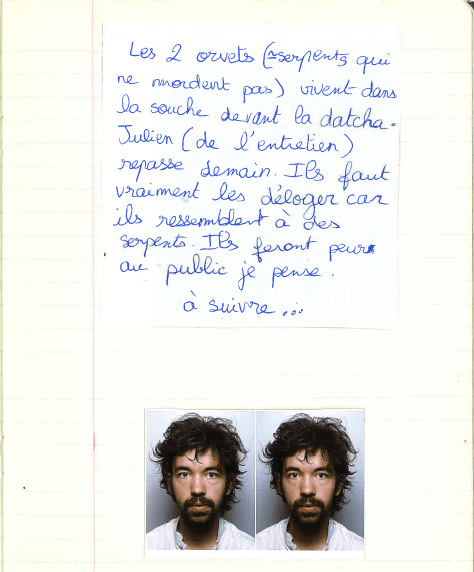 Les 2 orvets (≈serpents qui
ne mordent pas) vivent dans
la souche devant la datcha.
Julien (de l'entretien)
repasse demain. Ils faut
vraiment les déloger car
ils ressemblent à des
serpents. Ils feront peur
au public je pense.
à suivre...